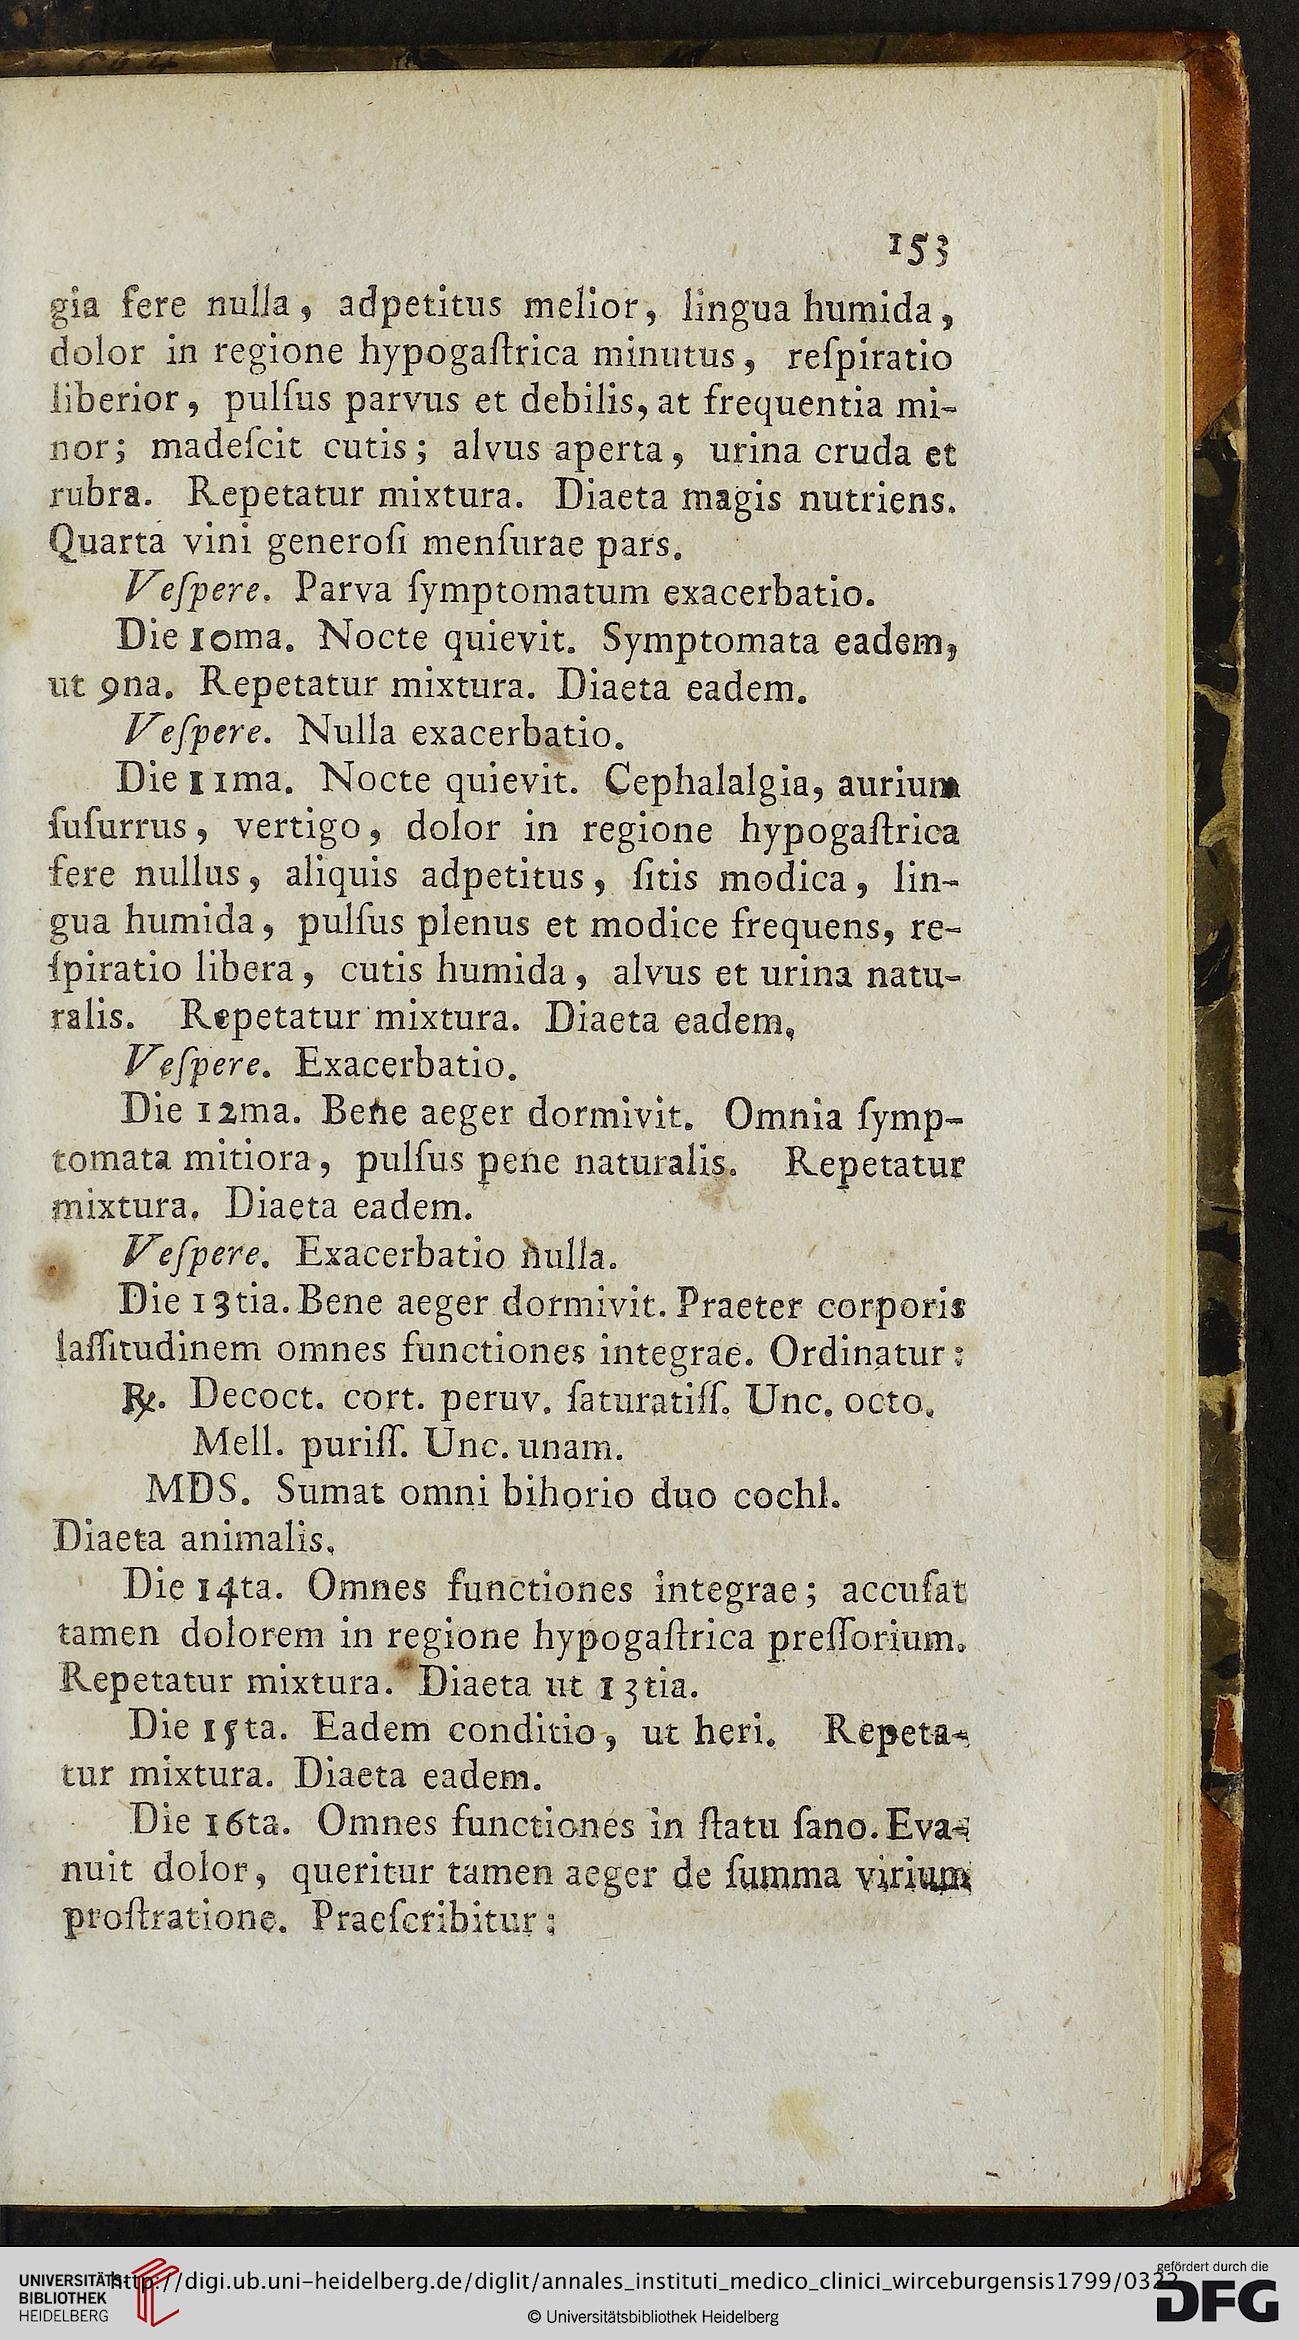 153
gia fere nulla, adpetitus melior, lingua humida,
dolor in regione hypogaſtrica minutus, reſpiratio
liberior, pulſus parvus et debilis, at frequentia mi-
nor; madeſcit cutis; alvus aperta, urina cruda et
rubra. Repetatur mixtura. Diaeta magis nutriens.
Quarta vini generoſi menſurae pars.
Veſpere. Parva ſymptomatum exacerbatio.
Die 10ma. Nocte quievit. Symptomata eadem,
ut 9na. Repetatur mixtura. Diaeta eadem.
Veſpere. Nulla exacerbatio.
Die 11ma. Nocte quievit. Cephalalgia, aurium
ſuſurrus, vertigo, dolor in regione hypogaſtrica
fere nullus, aliquis adpetitus, ſitis modica, lin-
gua humida, pulſus plenus et modice frequens, re-
ſpiratio libera, cutis humida, alvus et urina natu-
ralis. Repetatur mixtura. Diaeta eadem.
Veſpere. Exacerbatio.
Die 12ma. Bene aeger dormivit. Omnia ſymp-
tomata mitiora, pulſus pene naturalis. Repetatur
mixtura. Diaeta eadem.
Veſpere. Exacerbatio nulla.
Die 13tia. Bene aeger dormivit. Praeter corporis
laſſitudinem omnes functiones integrae. Ordinatur:
℞. Decoct. cort. peruv. ſaturatiſſ. Unc. octo.
Mell. puriſſ. Unc. unam.
MDS. Sumat omni bihorio duo cochl.
Diaeta animalis.
Die 14ta. Omnes functiones integrae; accuſat
tamen dolorem in regione hypogaſtrica preſſorium.
Repetatur mixtura. Diaeta ut 13tia.
Die 15ta. Eadem conditio, ut heri. Repeta-
tur mixtura. Diaeta eadem.
Die 16ta. Omnes functiones in ſtatu ſano. Eva-
nuit dolor, queritur tamen aeger de ſumma virium
proſtratione. Praeſcribitur:
UNIVERSITÄTS-
BIBLIOTHEK
HEIDELBERG
http://digi.ub.uni-heidelberg.de/diglit/annales_instituti_medico_clinici_wirceburgensis1799/0322
© Universitätsbibliothek Heidelberg
gefördert durch die
DFG